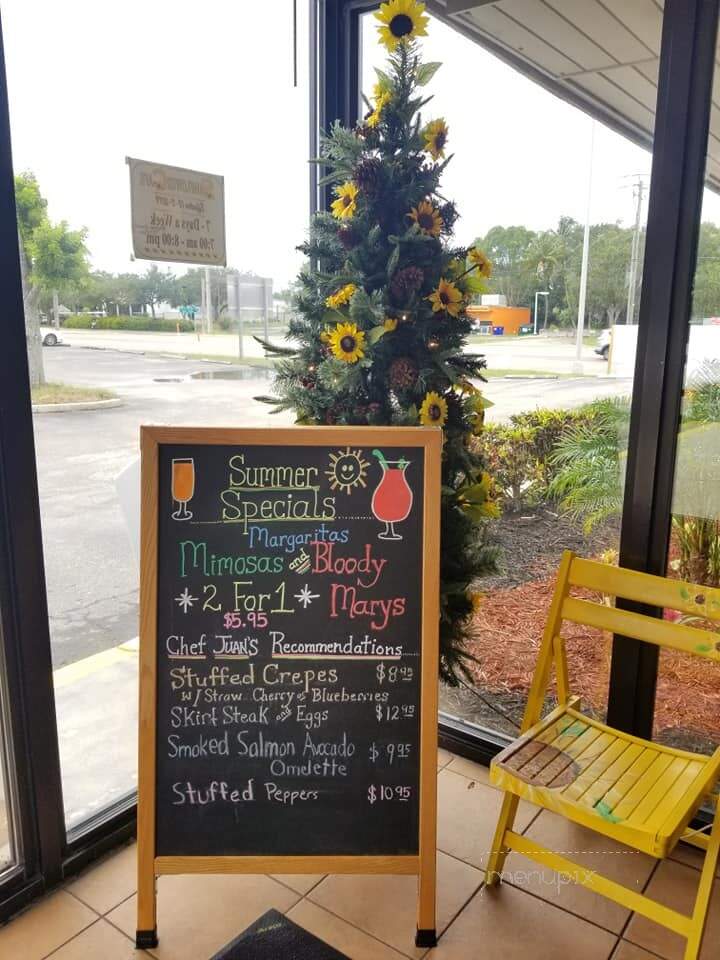 7 Days a Week
7:00 am - 8:00 pm
Summer
Specials
Margaritas
Mimosas and Bloody
Marys
*2 For 1*
$5.95
Chef JUAN'S Recommendations
Stuffed Crepes $8.95
w/ Straw. Cherry or Blueberries
Skirt Steak and Eggs $12.95
Smoked Salmon Avocado $9.95
Omelette
Stuffed Peppers $10.95
menupix